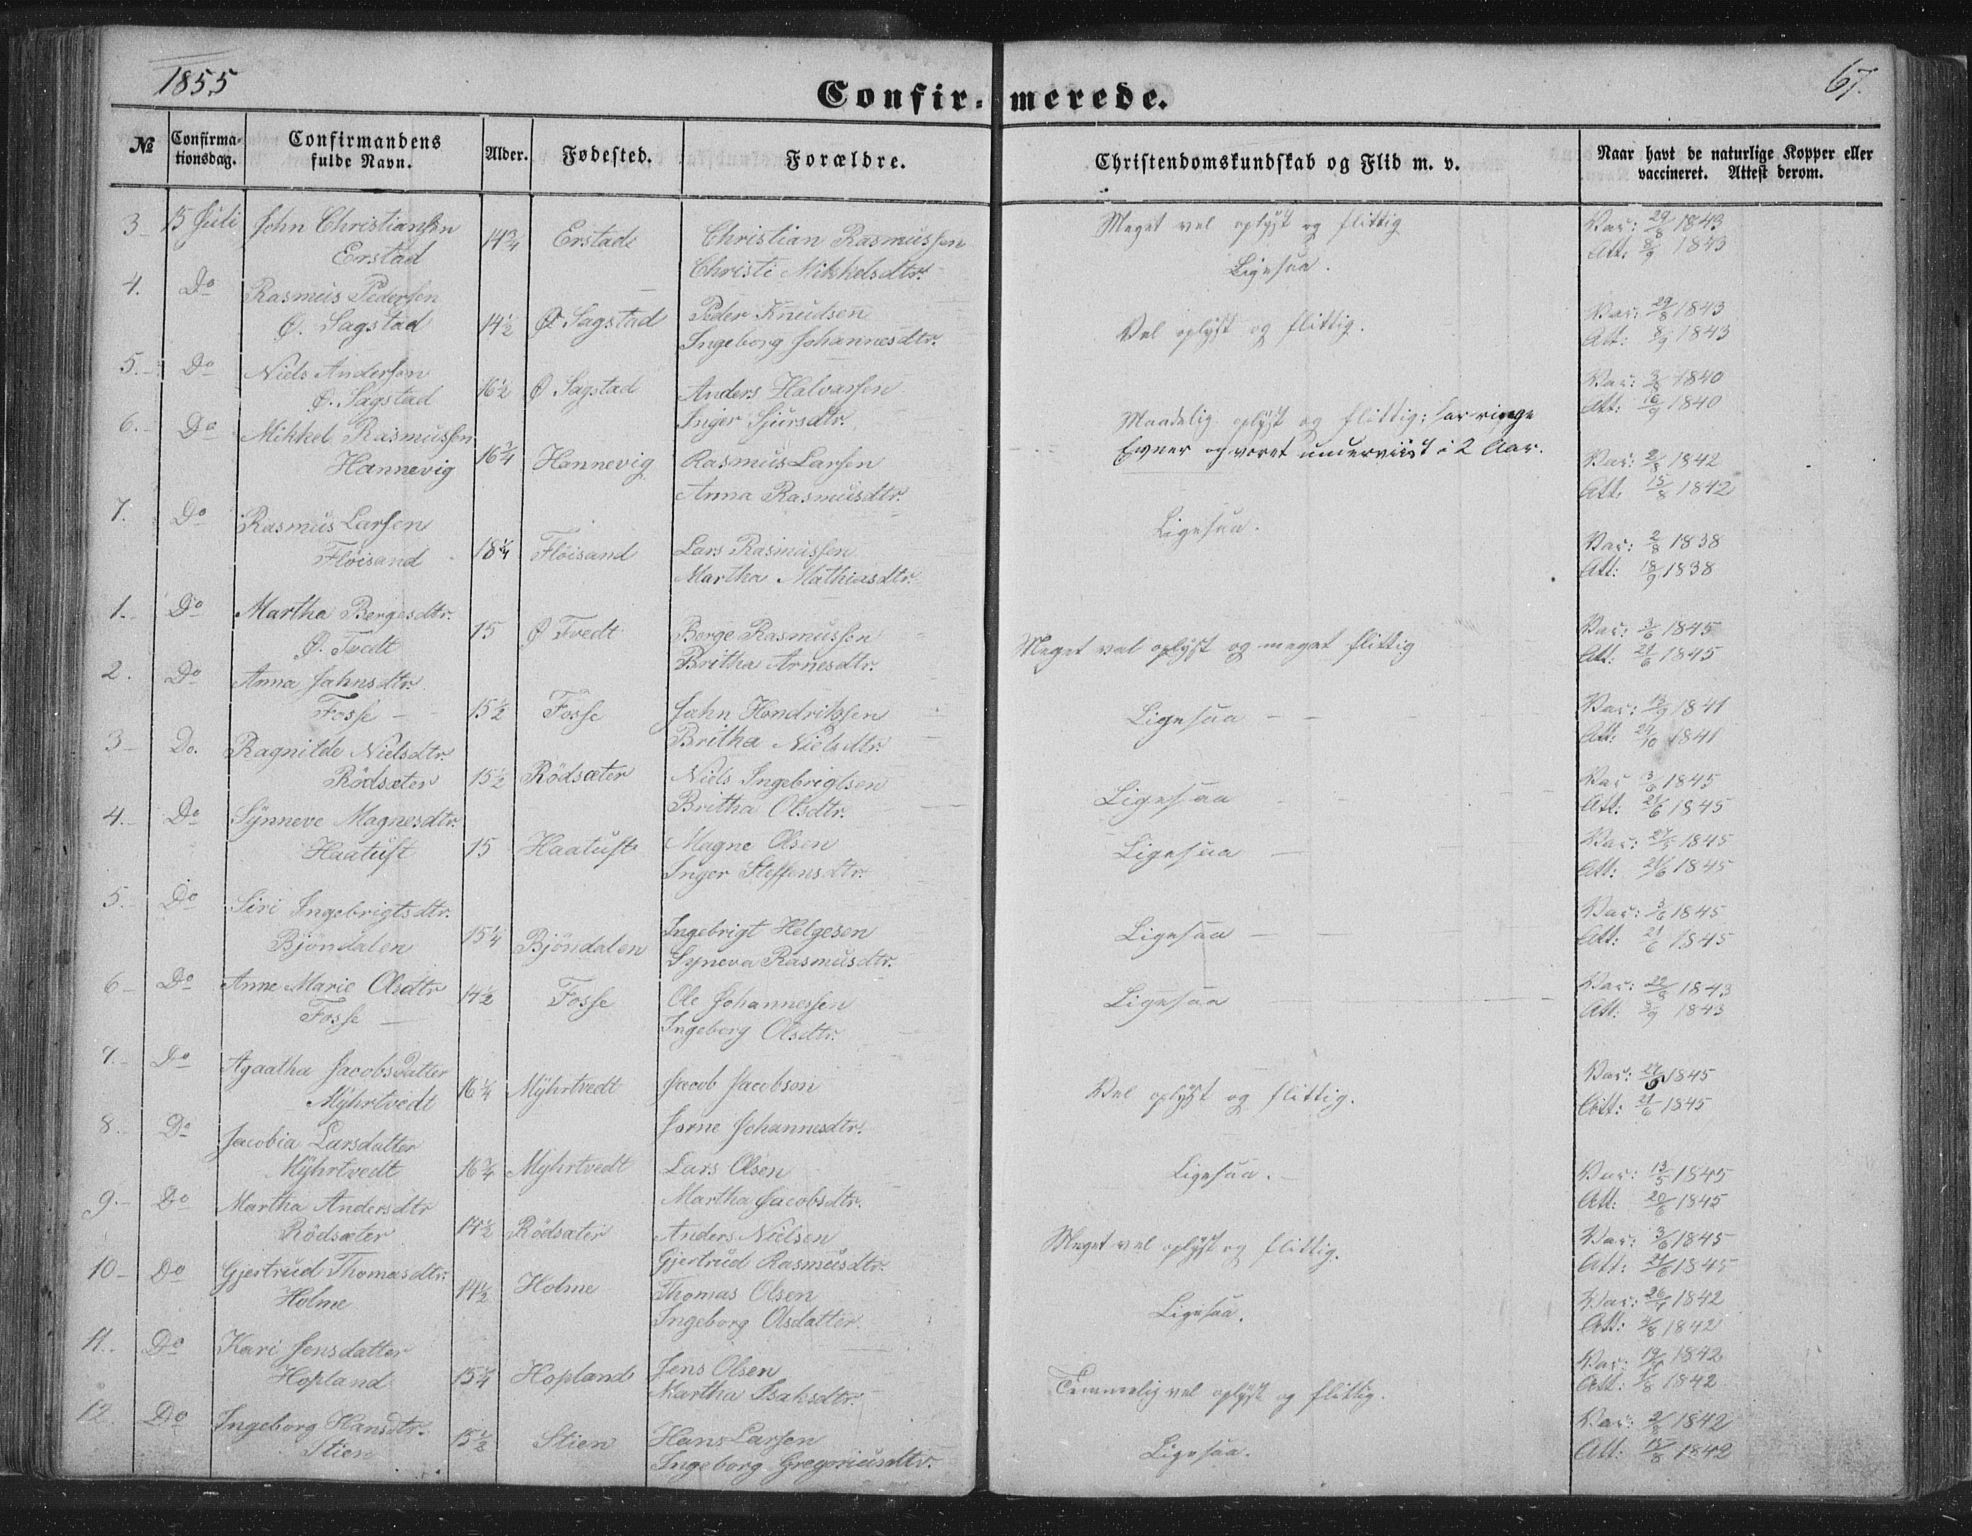 1855
67.
Confir- merede.
№ Confirma- Confirmandens Alder. Fødested. Forældre. Christendomskundskab og Flid m. v. Naar havt de naturlige Kopper eller
tionsdag. fulde Navn. vaccineret. Attest derom.
3 15 Juli John Christiansen 14 3/4 Erstad Christian Rasmussen Meget vel oplyst og flittig Vac: 29/8 1843
Erstad Christi Mikkelsdtr. Ligesaa. Att. 8/9 1843
4. Do Rasmus Pedersen
Ø. Sagstad 14 1/2 Ø Sagstad Peder Knudsen Vel oplyst og flittig. Vac: 29/8 1843
Ingeborg Johannesdtr. Att: 8/9 1843
5. Do Niels Andersen
Ø. Sagstad 16 1/2 Ø Sagstad Anders Halvorsen Vac: 1840
Inger Sjursdtr. Maadelig oplyst og flittig: har ringe Att: 1840
6. Do Mikkel Rasmussen
Hannevig 16 3/4 Hannevig Rasmus Larsen Evner og været underviist i 2 Aar. Vac: 2/8 1842
Anna Rasmusdtr. Att. 15/8 1842
7. Do Rasmus Larsen Ligesaa.
Fløisand 18 1/4 Fløisand Lars Rasmussen Vac: 2/8 1838
Martha Mathiasdtr. Att: 18/9 1838
1. Do Martha Børgesdtr.
Ø. Tvedt 15 Ø Tvedt Børge Rasmussen Meget vel oplyst og meget flittig Vac: 3/6 1845
Britha Arnesdtr. Att: 21/6 1845
2. Do Anna Jahnsdtr.
Fosse 15 1/2 Fosse Jahn Hendriksen Ligesaa Vac: 1841
Britha Nielsdtr. Att: 1841
3 Do. Ragnilde Nielsdtr.
Rödsæter 15 1/2 Rödsæter Niels Ingebrigtsen Ligesaa Vac 3/6 1845
Britha Olsdtr. Att. 21/6 1845
4. Do Synneve Magnesdtr.
Haatuft 15 Haatuft Magne Olsen Ligesaa Vac: 27/5 1845
Inger Steffensdtr. Att: 21/6 1845
5. Do Siri Ingebrigtsdtr.
Bjöndalen 15 1/4 Bjöndalen Ingebrigt Helgesen Ligesaa Vac: 3/6 1845
Syneva Rasmusdtr. Att: 21/6 1845
6 Do Anne Marie Olsdtr 14 1/2 Fosse Ole Johannessen Ligesaa Vac: 1843
Fosse Ingeborg Olsdtr. Att: 1843
7. Do Agaatha Jacobsdatter
Myhrtvedt 16 1/4 Myhrtvedt Jacob Jacobsen Vel oplyst og flittig. Vac: 1845
Jorne Johannesdtr. Att: 21/6 1845
8. Do Jacobia Larsdatter
Myhrtvedt 16 3/4 Myhrtvedt Lars Olsen Ligesaa. Vac: 13/5 1845
Martha Jacobsdtr. Att: 20/6 1845
9. Do Martha Andersdtr
Rödsæter 14 1/2 Rödsæter Anders Nielsen Meget vel oplyst og flittig. Vac: 3/6 1845
Gjertrud Rasmusdtr. Att: 21/6 1845
10 Do Gjertrud Thomasdtr.
Holme 14 1/2 Holme Thomas Olsen Ligesaa. Vac: 1842
Ingeborg Olsdatter Att: 1842
11. Do Kari Jensdatter
Hopland 15 1/4 Hopland Jens Olsen Temmelig vel oplyst og flittig. Vac: 1842
Martha Isaksdtr. Att: 1842
12. Do Ingeborg Hansdtr.
Stien 15 1/2 Stien Hans Larsen Ligesaa. Vac: 2/8 1842
Ingeborg Gregoriusdtr. Att: 15/8 1842